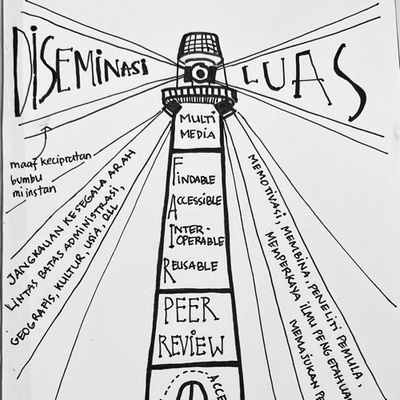 DISEMINASI LUAS
maaf kecipratan
bumbu
mi instan
MULTI
MEDIA
FINDABLE
ACCESSIBLE
INTER-
OPERABLE
REUSABLE
PEER
REVIEW
JANGKAUAN KE SEGALA ARAH
LINTAS BATAS ADMINISTRASI,
GEOGRAFIS, KULTUR, USIA, DLL.,
MEMOTIVASI, MEMBINA, PENELITI PEMULA,
MEMPERKAYA ILMU PENGETAHUA
MEMAJUKAN PE
ACCE